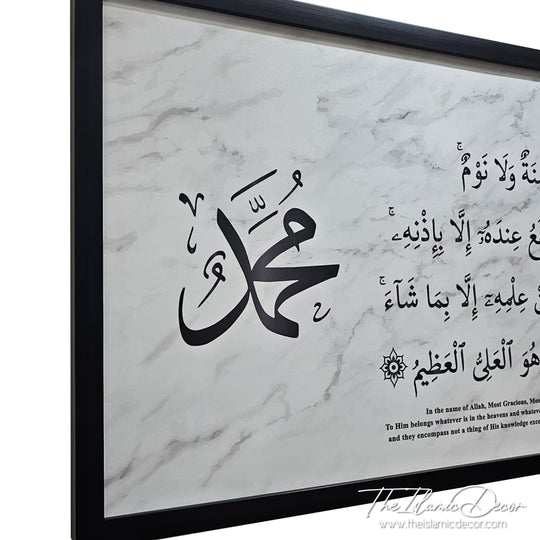 محمد
نَةٌ وَلَا نَوْمٌ ۚ
عِندَهُۥٓ إِلَّا بِإِذْنِهِۦ ۚ
عِلْمِهِۦٓ إِلَّا بِمَا شَآءَ ۚ
هُوَ ٱلْعَلِىُّ ٱلْعَظِيمُ
In the name of Allah, Most Gracious, Mos
To Him belongs whatever is in the heavens and whateve
and they encompass not a thing of His knowledge exce
The Islamic Decor
www.theislamicdecor.com